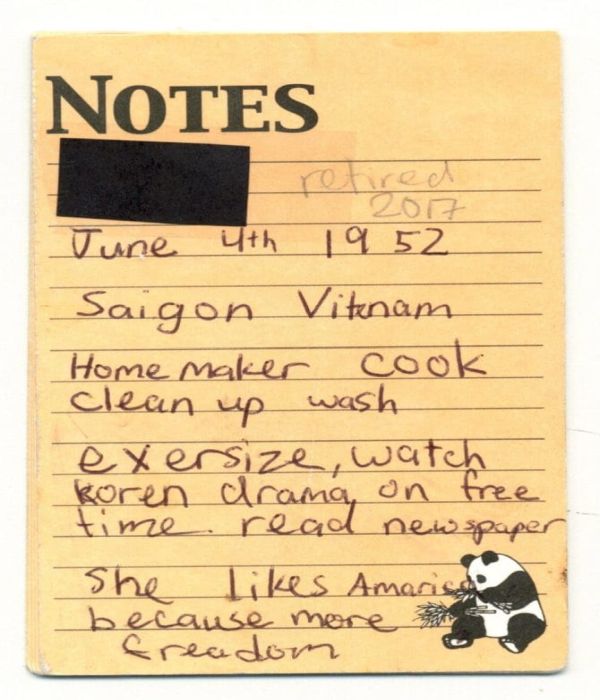 NOTES
retired
2017
June 4th 1952
Saigon Vitnam
Homemaker cook
clean up wash
exersize, watch
koren drama, on free
time. read newspaper
She likes
because more
freadom